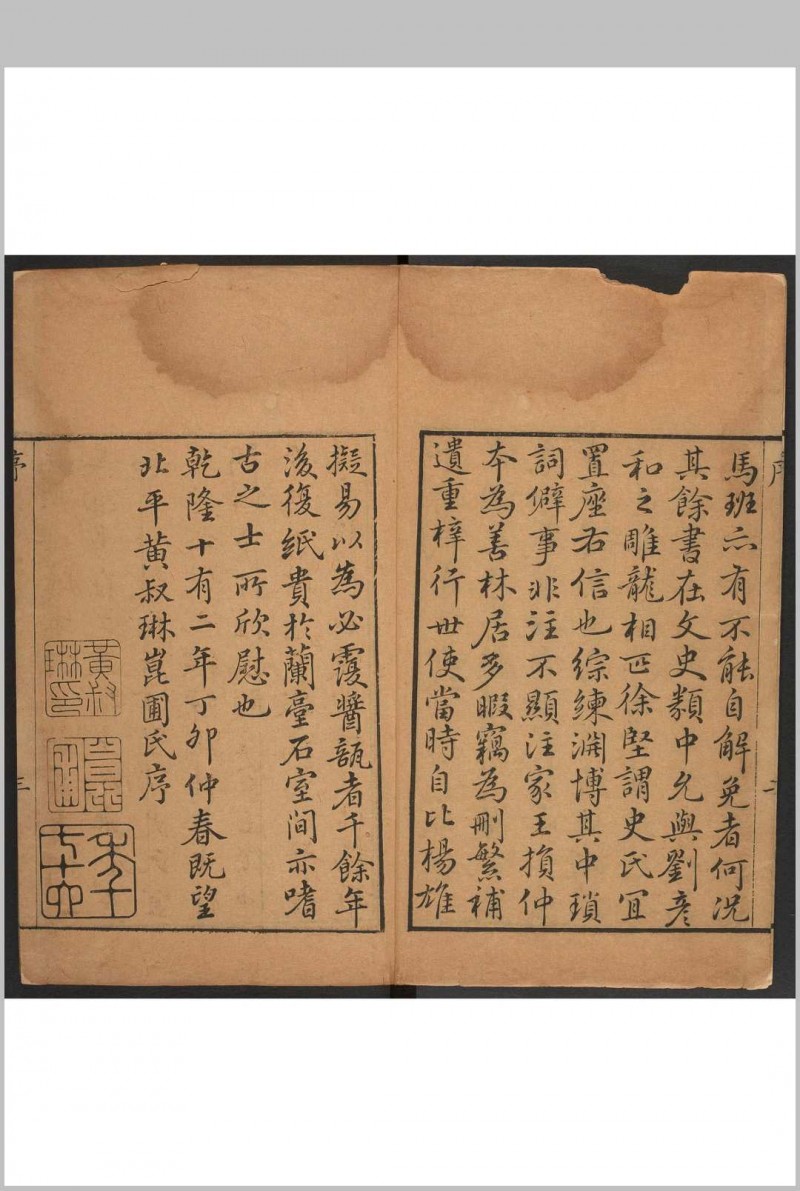 序
二
馬班亦有不能自解免者何況
其餘書在文史類中允與劉彥
和之雕龍相匹徐堅謂史氏宜
置座右信也綜練淵博其中瑣
詞僻事非注不顯注家王損仲
本為善林居多暇竊為刪繁補
遺重梓行世使當時自比楊雄
擬易以為必覆醬瓿者千餘年
後復紙貴於蘭臺石室間亦嗜
古之士所欣慰也
乾隆十有二年丁卯仲春既望
北平黃叔琳崑圃氏序
黃叔
琳印
崑
圃
七十六
序
三